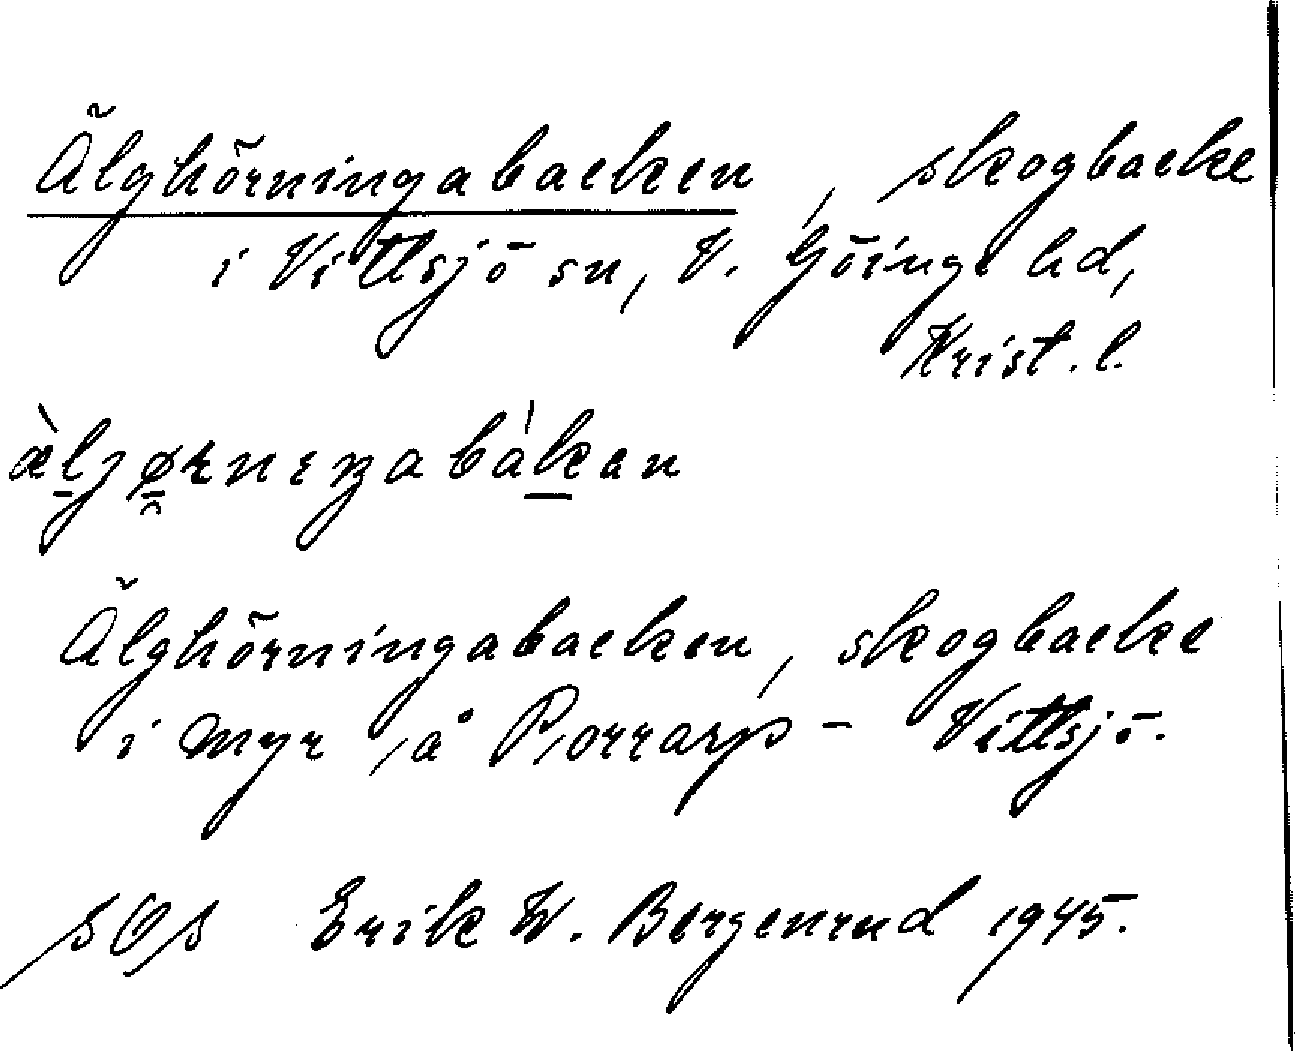 Älghörningabacken, skogbacke
i Vittsjö sn, V. Göinge hd,
Krist. l.
Älghörningabacken, skogbacke
i myr, å Porrarp - Vittsjö.
SOS Erik W. Bergenrud 1945.